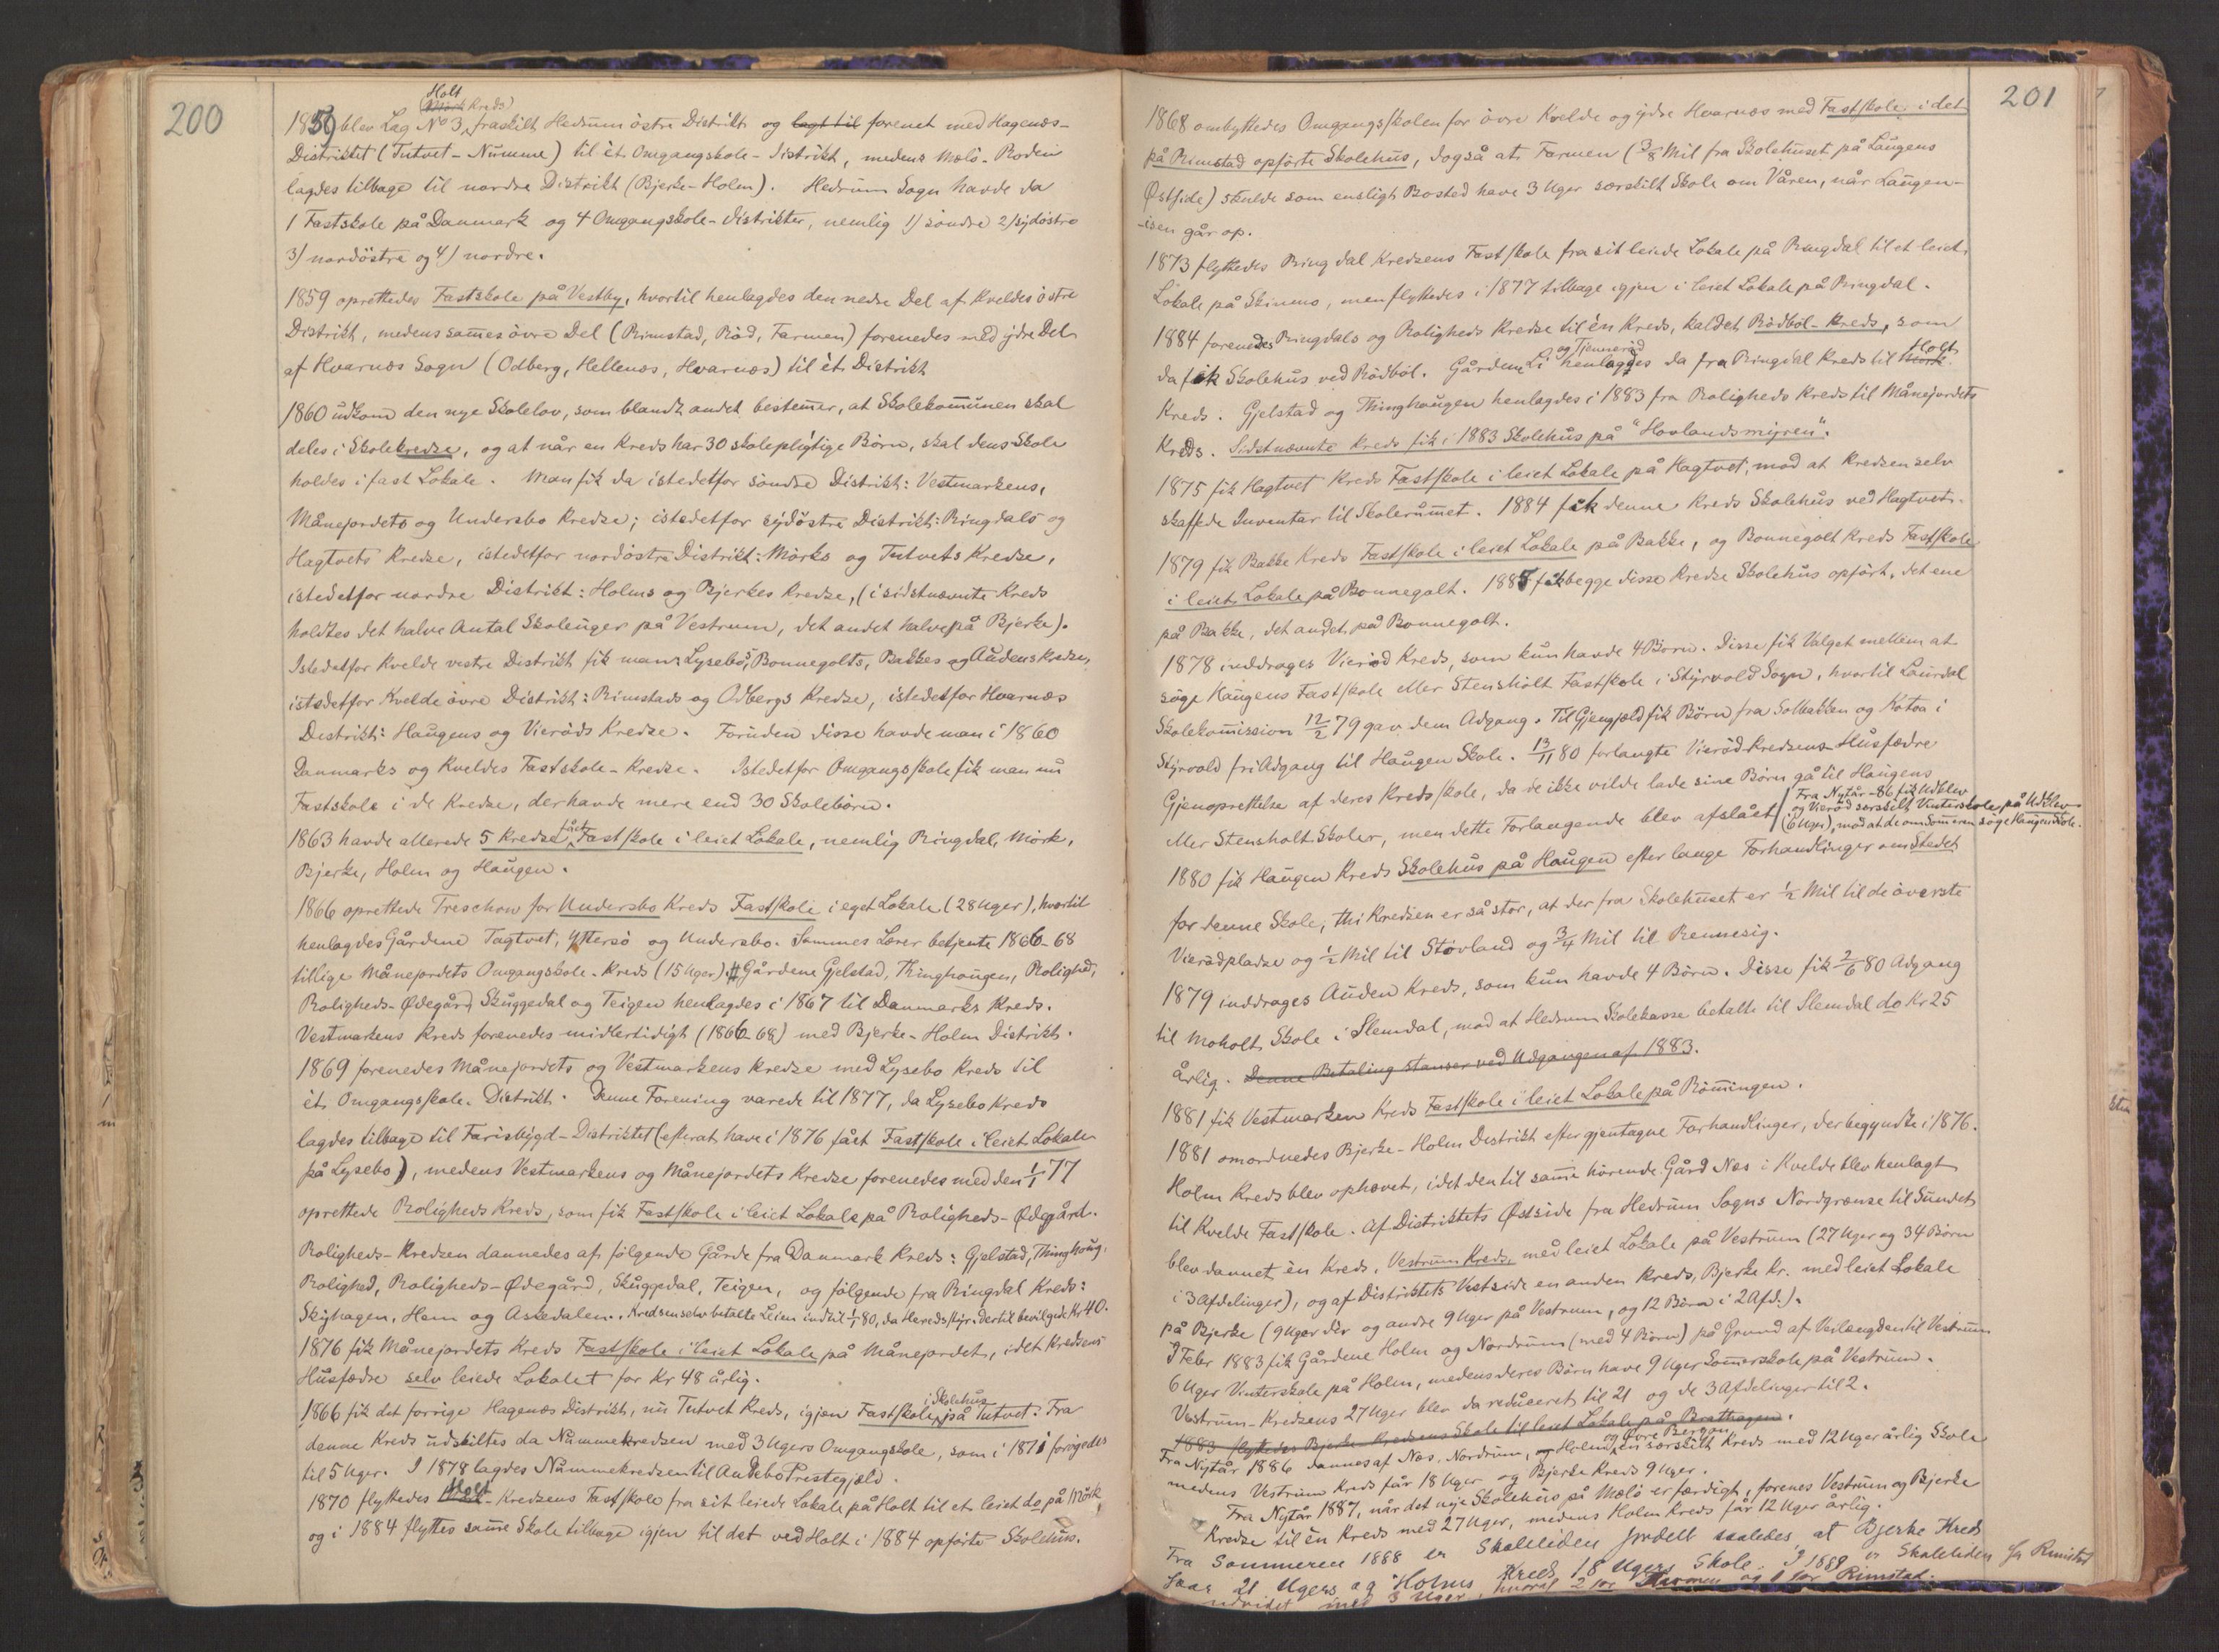 200
Holt
(Mörk Kreds)
1859 blev Lag No 3, fraskilt Hedrum östre Distrikt og lagt til forenet med Hagenæs-
Distriktet (Tutvet-Numme) til ét Omgangskole-Distrikt, medens Mælö-Roden
lagdes tilbage til nordre Distrikt (Bjerke-Holm). Hedrum Sogn havde da
1 Fastskole på Danmark og 4 Omgangskole-Distrikter, nemlig 1/ söndre 2/ sydöstre
3/ nordöstre og 4/ nordre.
1859 oprettedes Fastskole på Vestby, hvortil henlagdes den nedre Del af Kveldes östre
Distrikt, medens sam̄es övre Del (Rimstad, Röd, Farmen) forenedes med ydre Del
af Hvarnæs Sogn (Odberg, Hellenæs, Hvarnæs) til ét Distrikt
1860 udkom den nye Skolelov, som blandt andet bestem̄er, at Skolekom̄unen skal
deles i Skolekredse, og at når en Kreds har 30 skolepligtige Börn, skal dens Skole
holdes i fast Lokale. Man fik da istedetfor söndre Distrikt: Vestmarkens,
Månejordets og Undersbo Kredse; istedetfor sydöstre Distrikt: Ringdals og
Hagtvets Kredse, istedetfor nordöstre Distrikt: Mörks og Tutvets Kredse,
istedetfor nordre Distrikt: Holms og Bjerkes Kredse, (i sidstnævnte Kreds
holdtes det halve Antal Skoleuger på Vestrum, det andet halve på Bjerke).
Istedetfor Kvelde vestre Distrikt fik man: Lysebös, Bonnegolts, Bakkes og Audens Kredse,
istedetfor Kvelde övre Distrikt: Rimstads og Odbergs Kredse, istedetfor Hvarnæs
Distrikt: Haugens og Vieröds Kredse. Foruden disse havde man i 1860
Danmarks og Kveldes Fastskole-Kredse. Istedetfor Omgangsskole fik man nu
Fastskole i de Kredse, der havde mere end 30 Skolebörn.
1863 havde allerede 5 Kredse fået Fastskole i leiet Lokale, nemlig Ringdal, Mörk,
Bjerke, Holm og Haugen.
1866 oprettede Treschow for Undersbo Kreds Fastskole i eget Lokale (28 Uger), hvortil
henlagdes Gårdene Tagtvet, Yttersö og Undersbo. Sammes Lærer betjente 1866-68
tillige Månejordets Omgangskole-Kreds (15 Uger). # Gårdene Gjelstad, Thinghougen, Rolighed,
Roligheds-Ødegård, Skuggedal og Teigen henlagdes i 1867 til Danmarks Kreds.
Vestmarkens Kreds forenedes midlertidigt (1866-68) med Bjerke-Holm Distrikt.
1869 forenedes Månejordets og Vestmarkens Kredse med Lysebo Kreds til
ét Omgangsskole-Distrikt. Denne Forening varede til 1877, da Lysebo Kreds
lagdes tilbage til Farisbygd-Distriktet (efterat have i 1876 fået Fastskole i leiet Lokale
på Lysebo), medens Vestmarkens og Månejordets Kredse forenedes med den 1/1 77
oprettede Roligheds Kreds, som fik Fastskole i leiet Lokale på Roligheds-Ødegård.
Roligheds-Kredsen dannedes af følgende Gårde fra Danmark Kreds: Gjelstad, Thinghoug,
Rolighed, Roligheds-Ødegård, Skuggedal, Teigen, og fölgende fra Ringdal Kreds:
Skyhagen, Hem og Askedalen. Kredsen selv betalte Leien indtil 1/1 80, da Heredsstyr. dertil bevilgede Kr 40.
1876 fik Månejordets Kreds Fastskole i leiet Lokale på Månejordet, idet Kredsens
Husfædre selv leiede Lokalet for Kr 48 årlig.
1866 fik det forrige Hagenæs Distrikt, nu Tutvet Kreds, igjen Fastskole i Skolehus på Tutvet. Fra
denne Kreds udskiltes da Nummekredsen med 3 Ugers Omgangskole, som i 1871 forögedes
til 5 Uger. I 1878 lagdes Nummekredsen til Andebo Prestegjæld.
1870 flyttedes Holt-Kredsens Fastskole fra sit leiede Lokale på Holt til et leiet do på Mörk,
og i 1884 flyttes sam̄e Skole tilbage igjen til det ved Holt i 1884 opförte Skolehus.
201
1868 ombyttedes Omgangsskolen for övre Kvelde og ydre Hvarnæs med Fastskole i det
på Rimstad opförte Skolehus, dog så at Farmen (3/8 Mil fra Skolehuset på Laugens
Østside) skulde som ensligt Bosted have 3 Uger særskilt Skole om Våren, når Laugen-
isen går op.
1873 flyttedes Ringdal Kredsens Fastskole fra sit leiede Lokale på Ringdal til et leiet
Lokale på Skinmo, men flyttedes i 1877 tilbage igjen i leiet Lokale på Ringdal.
1884 forenedes Ringdals og Roligheds Kredse til én Kreds, kaldet Rödböl-Kreds, som
da fik Skolehus ved Rödböl. Gårdene Li og Tjenneröd henlagdes da fra Ringdal Kreds til Mörk Holt
Kreds. Gjelstad og Thinghougen henlagdes i 1883 fra Roligheds Kreds til Månejordets
Kreds. Sidstnævnte Kreds fik i 1883 Skolehus på "Hovlandsmyren".
1875 fik Hagtvet Kreds Fastskole i leiet Lokale på Hagtvet, mod at Kredsen selv
skaffede Inventar til Skolerum̄et. 1884 fik denne Kreds Skolehus ved Hagtvet.
1879 fik Bakke Kreds Fastskole i leiet Lokale på Bakke, og Bonnegolt Kreds Fastskole
i leiet Lokale på Bonnegolt. 1885 fik begge disse Kredse Skolehus opfört, det ene
på Bakke, det andet på Bonnegolt.
1878 inddrages Vieröd Kreds, som kun havde 4 Börn. Disse fik Valget mellem at
söge Haugens Fastskole eller Stensholt Fastskole i Styrvold Sogn, hvortil Laurdal
Skolekom̄ission 12/2 79 gav dem Adgang. Til Gjengjæld fik Börn fra Solbakken og Kotoa i
Styrvold fri Adgang til Haugen Skole. 13/11 80 forlangte Vieröd Kredsens Husfædre
Gjenoprettelse af deres Kredsskole, da de ikke vilde lade sine Börn gå til Haugens
eller Stensholt Skoler, men dette Forlangende blev afslået
Fra Nytår -86 fik Udklev
og Vieröd særskilt Vinterskole på Udklev
(6 Uger), mod at de om Som̄eren söge Haugen Skole.
1880 fik Haugen Kreds Skolehus på Haugen efter lange Forhandlinger om Stedet
for denne Skole, thi Kredsen er så stor, at der fra Skolehuset er 1/2 Mil til de överste
Vierödpladse og 1/2 Mil til Stövland og 3/4 Mil til Rennesig.
1879 inddrages Auden Kreds, som kun havde 4 Börn. Disse fik 2/6 80 Adgang
til Moholt Skole i Slemdal, mod at Hedrum Skolekasse betalte til Slemdal do Kr 25
årlig. Denne Betaling stanser ved Udgangen af 1883.
1881 fik Vestmarken Kreds Fastskole i leiet Lokale på Röm̄ingen.
1881 omordnedes Bjerke-Holm Distrikt efter gjentagne Forhandlinger, der begyndte i 1876.
Holm Kreds blev ophævet, idet den til sam̄e hörende Gård Næs i Kvelde blev henlagt
til Kvelde Fastskole. Af Distriktets Østside fra Hedrum Sogns Nordgrænse til Sundet
blev dannet én Kreds, Vestrum Kreds, med leiet Lokale på Vestrum (27 Uger og 34 Börn
i 3 Afdelinger), og af Distriktets Vestside en anden Kreds, Bjerke Kr. med leiet Lokale
på Bjerke (9 Uger der og andre 9 Uger på Vestrum, og 12 Börn i 2 Afd.).
I Febr 1883 fik Gårdene Holm og Nordrum (med 4 Börn) på Grund af Veilængden til Vestrum
6 Uger Vinterskole på Holm, medens deres Börn have 9 Uger Som̄erskole på Vestrum.
Vestrum-Kredsens 27 Uger blev da reduceret til 21 og de 3 Afdelinger til 2.
1883 flyttedes Bjerke-Kredsens Skole til leiet Lokale på Bratthagen.
Fra Nytår 1886 dannes af Næs, Nordrum, og Holm og Övre Bergan en særskilt Kreds med 12 Uger årlig Skole
medens Vestrum Kreds får 18 Uger og Bjerke Kreds 9 Uger.
Fra Nytår 1887, når det nye Skolehus på Mælö er færdigt, forenes Vestrum og Bjerke
Kredse til én Kreds med 27 Uger, medens Holm Kreds får 12 Uger årlig.
Fra Sommeren 1888 er Skoletiden fordelt saaledes, at Bjerke Kreds
faar 21 Ugers og Holms Kreds 18 Ugers Skole. I 1889 er Skoletiden for Rimstad
udvidet med 3 Uger, hvoraf 2 for Farmen og 1 for Rimstad.